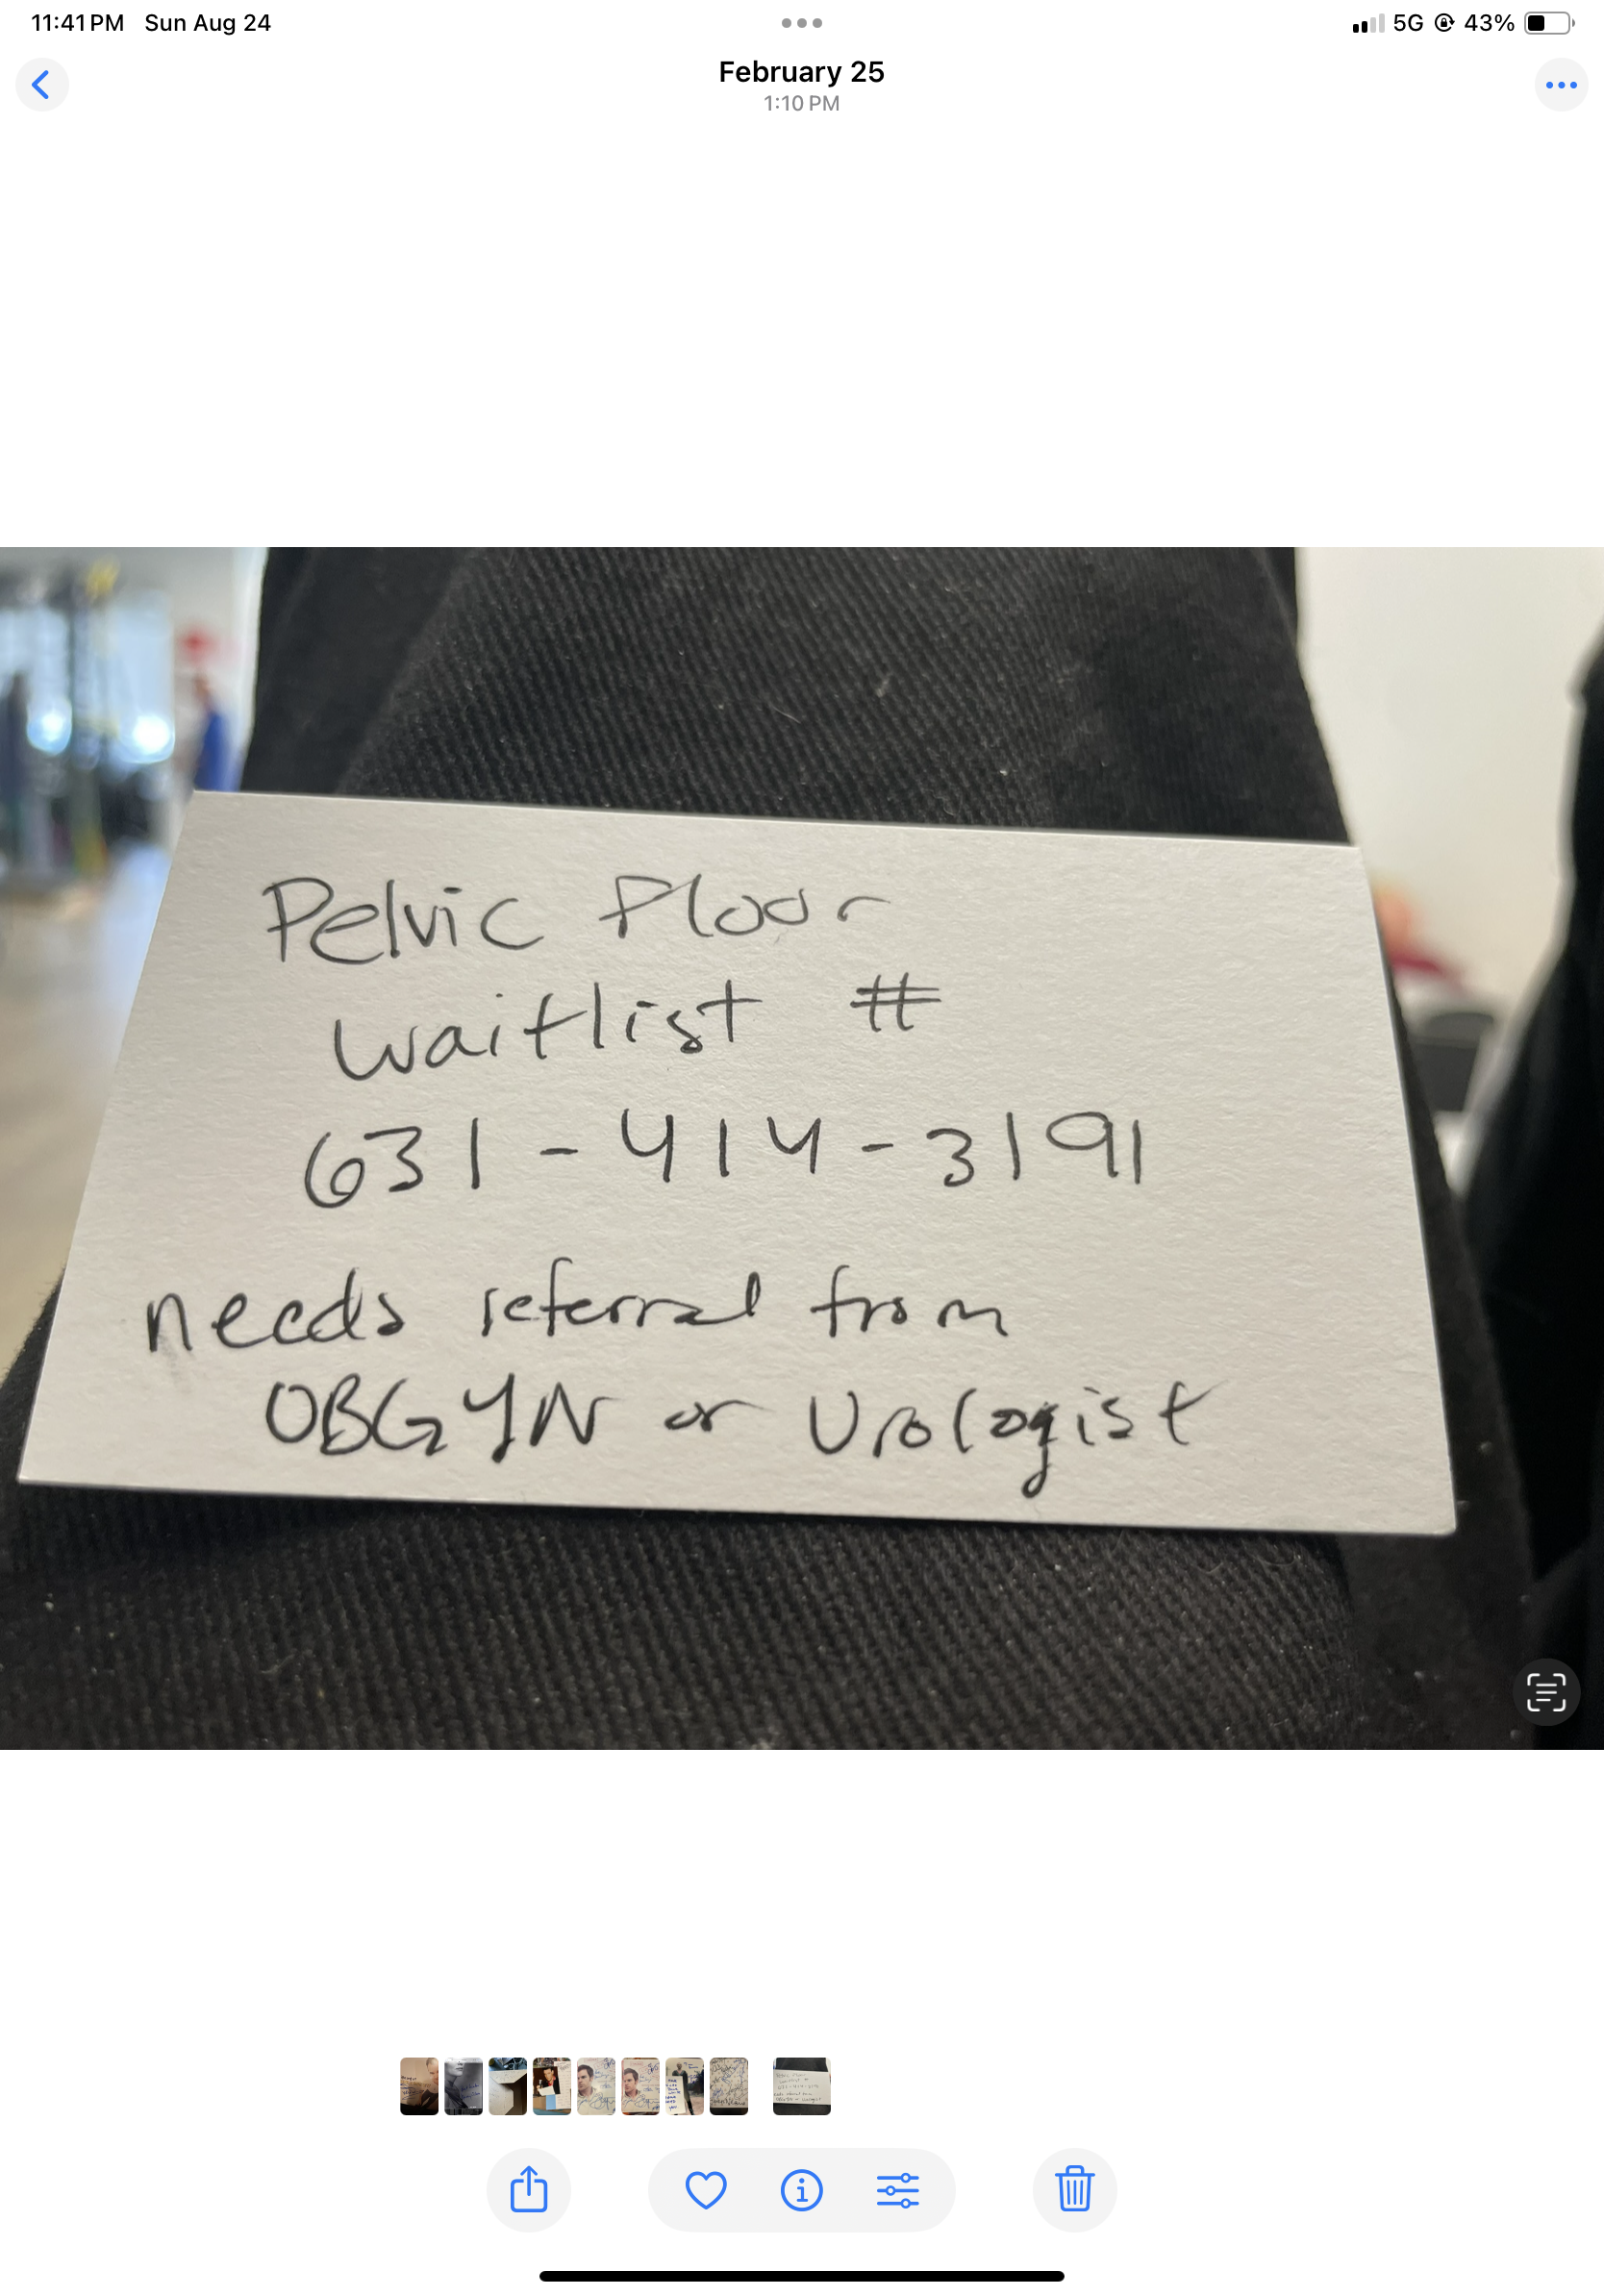 11:41 PM Sun Aug 24
5G 43%
February 25
1:10 PM
Pelvic Floor
waitlist #
631-414-3191
needs referral from
OBGYN or Urologist